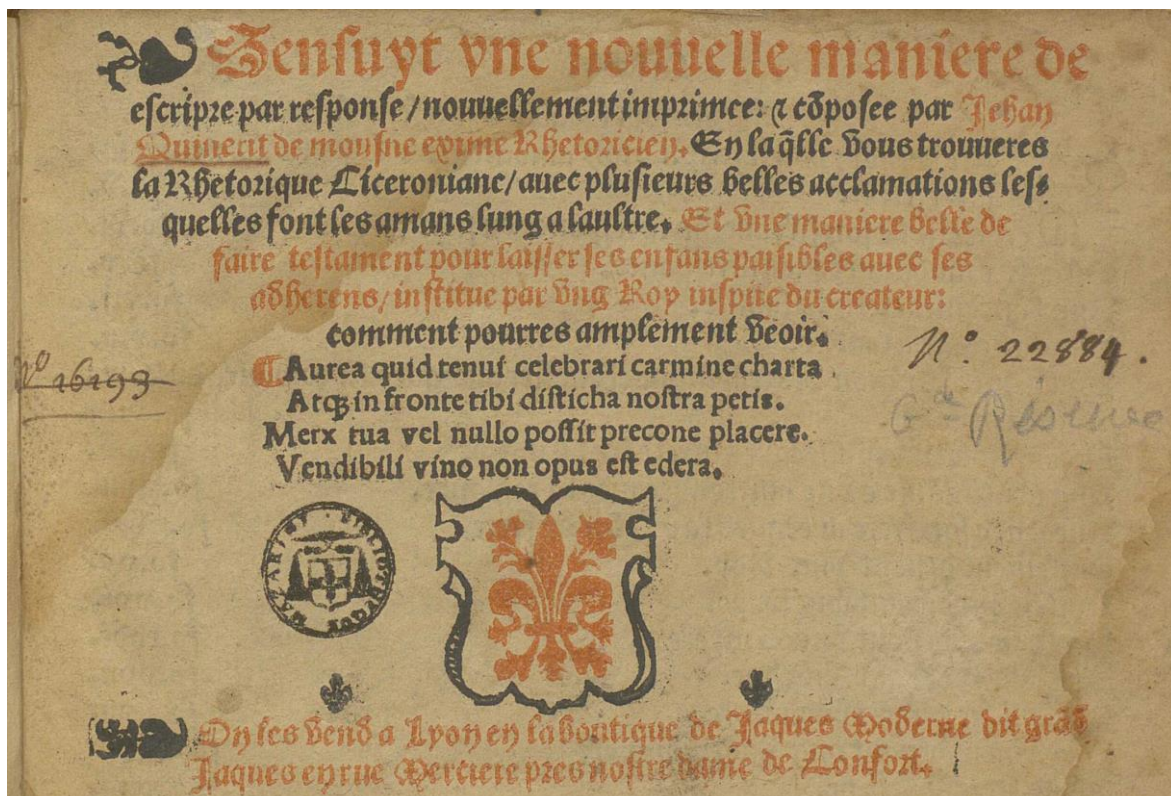 Sensuyt vne nouuelle maniere de
escripre par response / nouuellement imprimee: ⁊ cõposee par Jehan
Quinerit de mousne exime Rhetoricien. En la q̃lle vous trouueres
la Rhetorique Ciceroniane / auec plusieurs belles acclamations les⸗
quelles font les amans lung a laultre. Et vne maniere belle de
faire testament pour laisser ses enfans paisibles auec ses
adherens / institue par vng Roy inspite du createur:
comment pourres amplement veoir.
¶ Aurea quid tenui celebrari carmine charta
Atqꝫ in fronte tibi disticha nostra petis.
Merx tua vel nullo possit precone placere.
Vendibili vino non opus est edera.
Nº 16193
Nº 22884.
Gde Réserve
BIBLIOTHEQUE MAZARINE
On les vend a Lyon en la boutique de Jaques Moderne dit grãd
Jaques en rue Merciere pres nostre dame de Confort.